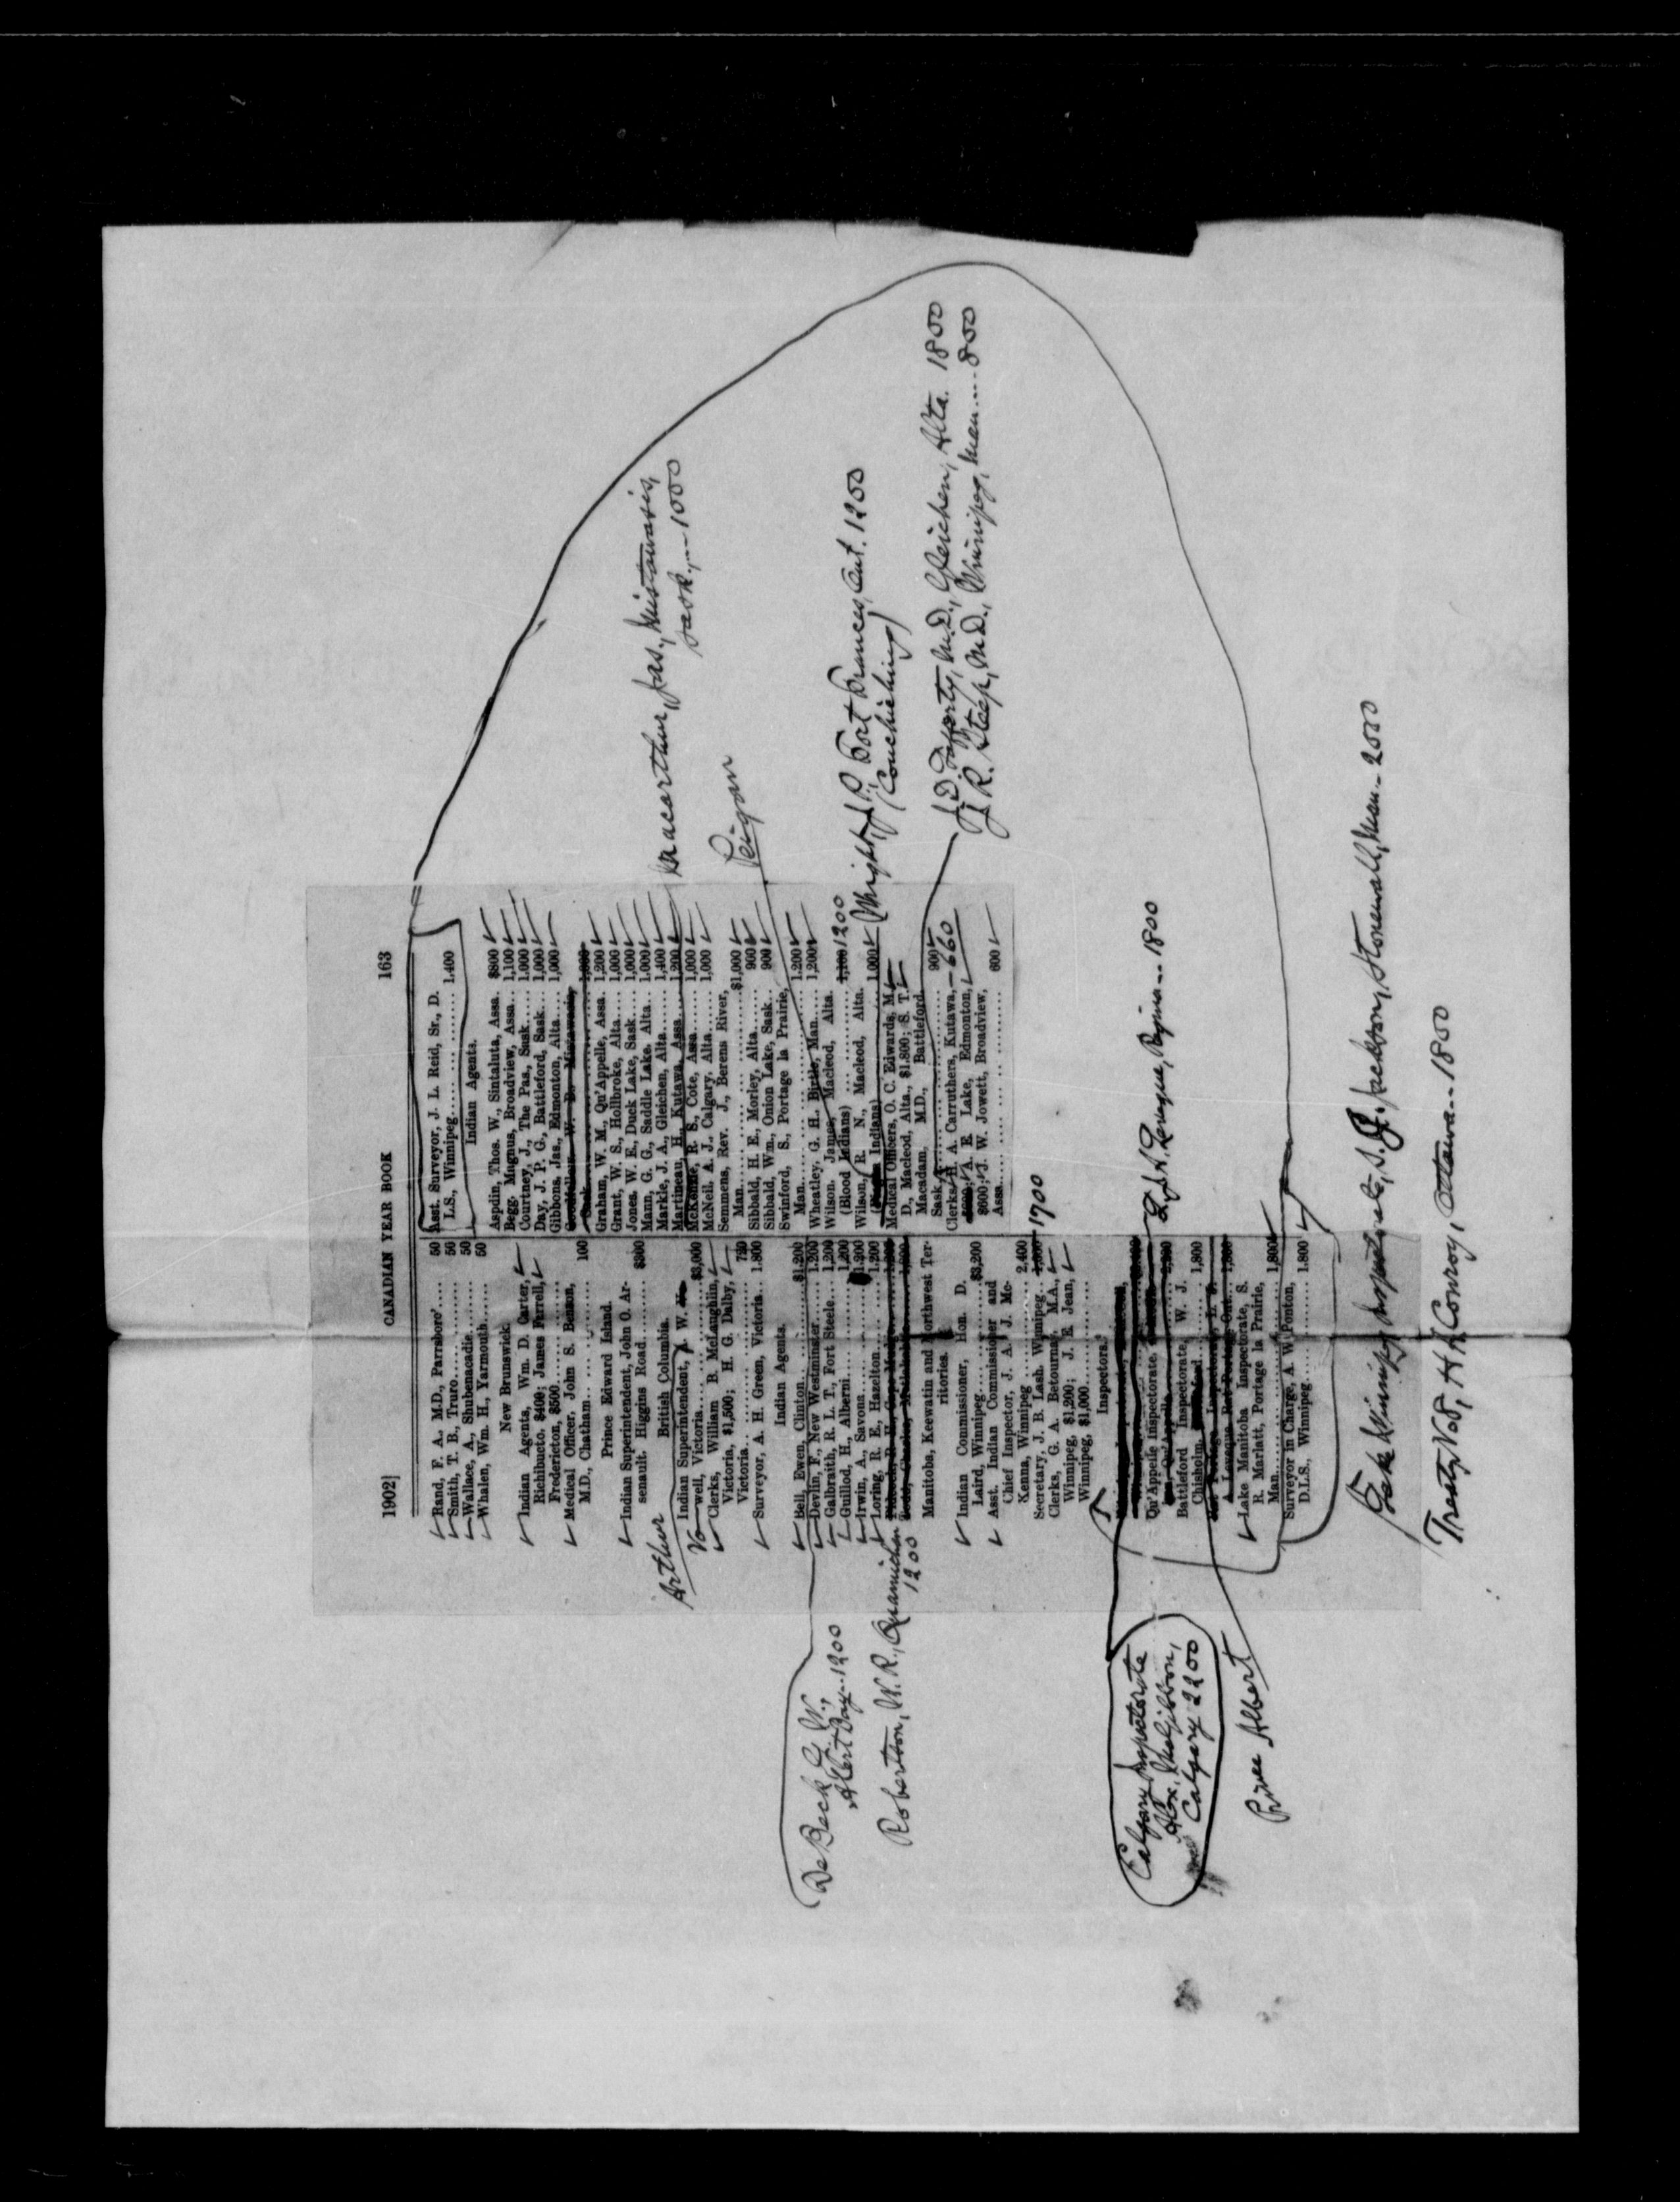 1902] CANADIAN YEAR BOOK 163
Rand, F. A. M.D., Parrsboro'.... 50
Smith, T. B., Truro.......... 50
Wallace, A., Shubenacadie....... 50
Whalen, Wm. H., Yarmouth...... 50
New Brunswick.
Indian Agents, Wm. D. Carter,
Richibucto, $400; James Farrell,
Fredericton, $500..........
Medical Officer, John S. Benson,
M.D., Chatham.......... 100
Prince Edward Island.
Indian Superintendent, John O. Ar-
senault, Higgins Road.......... $300
British Columbia.
Indian Superintendent, A. W.
Vo-well, Victoria.......... $3,000
Clerks, William B. McLaughlin,
Victoria, $1,500; H. G. Dalby,
Victoria.......... 720
Surveyor, A. H. Green, Victoria.. 1,800
Indian Agents.
Bell, Ewen, Clinton.......... $1,200
Devlin, F., New Westminster.... 1,200
Galbraith, R. L. T., Fort Steele... 1,200
Guillod, H., Alberni.......... 1,200
Irwin, A., Savona.......... 1,200
Loring, R. E., Hazelton.......... 1,200
Manitoba, Keewatin and Northwest Ter-
ritories.
Indian Commissioner, Hon. D.
Laird, Winnipeg.......... $3,200
Asst. Indian Commissioner and
Chief Inspector, J. A. J. Mc-
Kenna, Winnipeg.......... 2,400
Secretary, J. B. Lash, Winnipeg.. 1700
Clerks, G. A. Betournay, M.A.,
Winnipeg, $1,200; J. E. Jean,
Winnipeg, $1,000..........
Inspectors.
Qu'Appelle Inspectorate,
Battleford Inspectorate, W. J.
Chisholm, .......... 1,800
Lake Manitoba Inspectorate, S.
R. Marlatt, Portage la Prairie,
Man.......... 1,800
Surveyor in Charge, A. W. Ponton,
D.L.S., Winnipeg.......... 1,800
Asst. Surveyor, J. L. Reid, Sr., D.
L.S., Winnipeg.......... 1,400
Indian Agents.
Aspdin, Thos. W., Sintaluta, Assa. $800
Begg, Magnus, Broadview, Assa... 1,100
Courtney, J., The Pas, Sask..... 1,000
Day, J. P. G., Battleford, Sask.... 1,000
Gibbons, Jas., Edmonton, Alta.... 1,000
Graham, W. M., Qu'Appelle, Assa. 1,200
Grant, W. S., Hollbroke, Alta.... 1,000
Jones, W. E., Duck Lake, Sask.... 1,000
Mann, G. G., Saddle Lake, Alta... 1,000
Markle, J. A., Gleichen, Alta..... 1,400
Martineau, H., Kutawa, Assa..... 1,200
McKenzie, R. S., Cote, Assa..... 1,000
McNeil, A. J., Calgary, Alta..... 1,000
Semmens, Rev. J., Berens River,
Man.......... $1,000
Sibbald, H. E., Morley, Alta..... 900
Sibbald, Wm., Onion Lake, Sask... 900
Swinford, S., Portage la Prairie,
Man.......... 1,200
Wheatley, G. H., Birtle, Man..... 1,200
Wilson, James, Macleod, Alta.
(Blood Indians).......... 1,100 1200
Wilson, R. N., Macleod, Alta.
( Indians).......... 1,000
Medical Officers, O. C. Edwards, M.
D., Macleod, Alta., $1,800; S. T.
Macadam, M.D., Battleford,
Sask.......... 900
Clerks, H. A. Carruthers, Kutawa, 660
A. E. Lake, Edmonton,
$600; J. W. Jowett, Broadview,
Assa.......... 600
Arthur
De Beck G. W.,
Alert Bay...1200
Robertson, W. R., Quamichan
1200
Calgary Inspectorate
Alex. McGibbon,
Calgary 2200
Prince Albert
Macarthur, Jas., Mistawasis,
Sask......1000
Peigan
Wright, J. P. Fort Frances, Ont. 1200
(Couchiching)
J. D. Lafferty, M.D., Gleichen, Alta. 1800
J. R. Steep, M.D., Winnipeg, Man.....800
Levesque, Regina...1800
Lake Winnipeg Inspectorate, S. J. Jackson, Stonewall, Man...2000
Treaty No 8, H. A. Conroy, Ottawa...1800